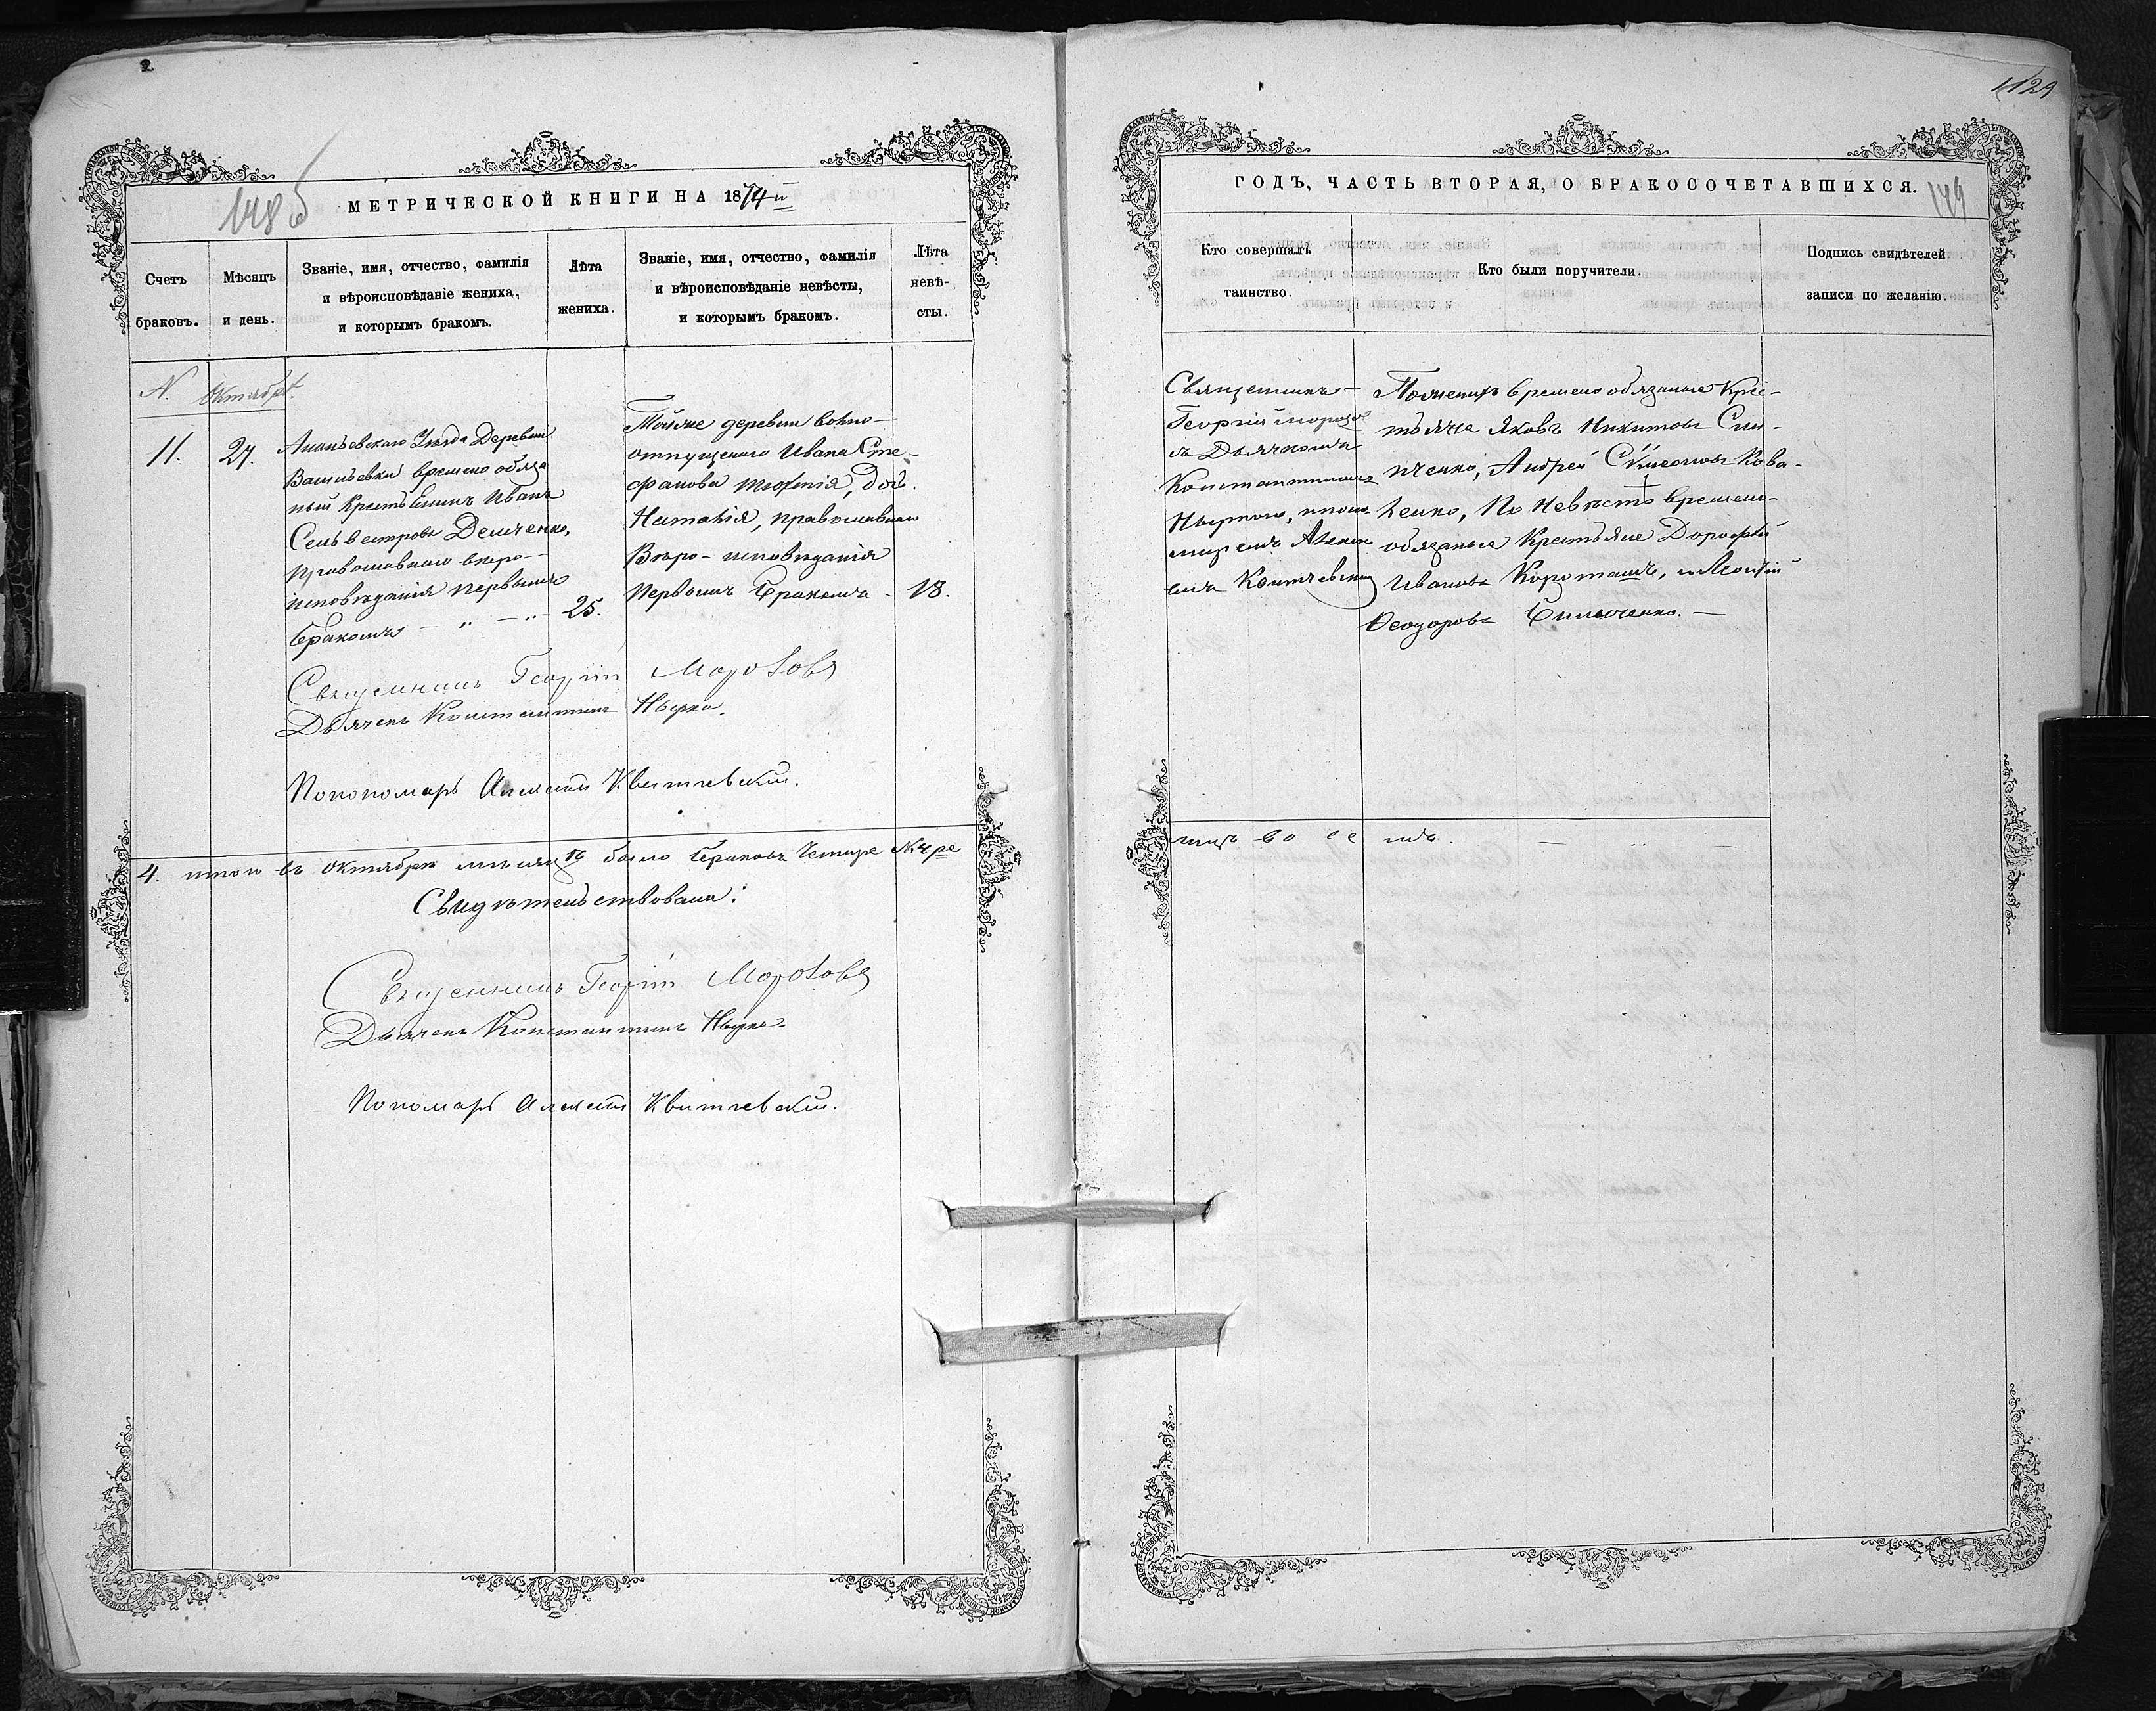 1129
148 об
МЕТРИЧЕСКОЙ КНИГИ НА 1874й
Счетъ
браковъ.
Мѣсяцъ
и день.
Званіе, имя, отчество, фамилія
и вѣроисповѣданіе жениха,
и которымъ бракомъ.
Лѣта
жениха.
Званіе, имя, отчество, фамилія
и вѣроисповѣданіе невѣсты,
и которымъ бракомъ.
Лѣта
невѣ-
сты.
N. Октября.
11. 27.
Ананьевскаго Уѣзда Деревни
Васильевки временно обяза
ный Крестьенинъ Иванъ
Сельвестровъ Демченко,
православнаго вѣро-
исповѣданія первымъ
бракомъ — „ — „ — 25.
Тойже деревни вольно-
отпущенаго Ивана Сте-
фанова дочь.
Наталія, православнаго
Вѣро-исповѣданія
первымъ бракомъ - 18.
Священникъ Георгій Морозовъ
Дьячекъ Константинъ Нырко.
Пономарь Алексѣй Квитчевскій.
4. итого въ октябрѣ мѣсяцѣ было браковъ Четыре №4ре
Свидѣтельствовали:
Священникъ Георгій Морозовъ
Дьячекъ Константинъ Нырко.
Пономарь Алексѣй Квитчевскій.
ГОДЪ, ЧАСТЬ ВТОРАЯ, О БРАКОСОЧЕТАВШИХСЯ.
149
Кто совершалъ
таинство.
Кто были поручители.
Подпись свидѣтелей
записи по желанію.
Священникъ
Георгій Морозов
съ Дьячкомъ
Константиномъ
Ныркою, поно
маремъ Алексѣ
емъ Квитчевским
По женихѣ временно обязаные Крес-
тьяне Яковъ Никитовъ Син-
иченко, Андрей Симеоновъ Кова-
ленко, По Невѣстѣ временно-
обязаные Крестьяне Дорофей
Ивановъ Короташъ, и Моисей
Феодоровъ Симоченко. —